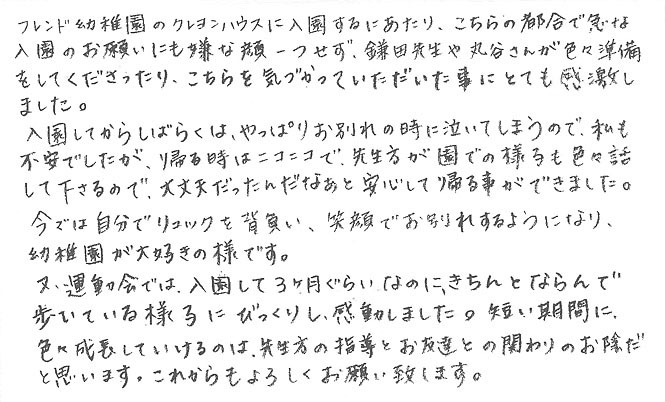 フレンド幼稚園のクレヨンハウスに入園するにあたり、こちらの都合で急な
入園のお願いにも嫌な顔一つせず、鎌田先生や丸谷さんが色々準備
をしてくださったり、こちらを気づかっていただいた事にとても感激し
ました。
入園してからしばらくは、やっぱりお別れの時に泣いてしまうので、私も
不安でしたが、帰る時はニコニコで、先生方が園での様子も色々話
して下さるので、大丈夫だったんだなあと安心して帰る事ができました。
今では自分でリュックを背負い、笑顔でお別れするようになり、
幼稚園が大好きの様です。
又、運動会では、入園して3ヶ月ぐらいなのに、きちんとならんで
歩いている様子にびっくりし、感動しました。短い期間に、
色々成長していけるのは、先生方の指導とお友達との関わりのお陰だ
と思います。これからもよろしくお願い致します。